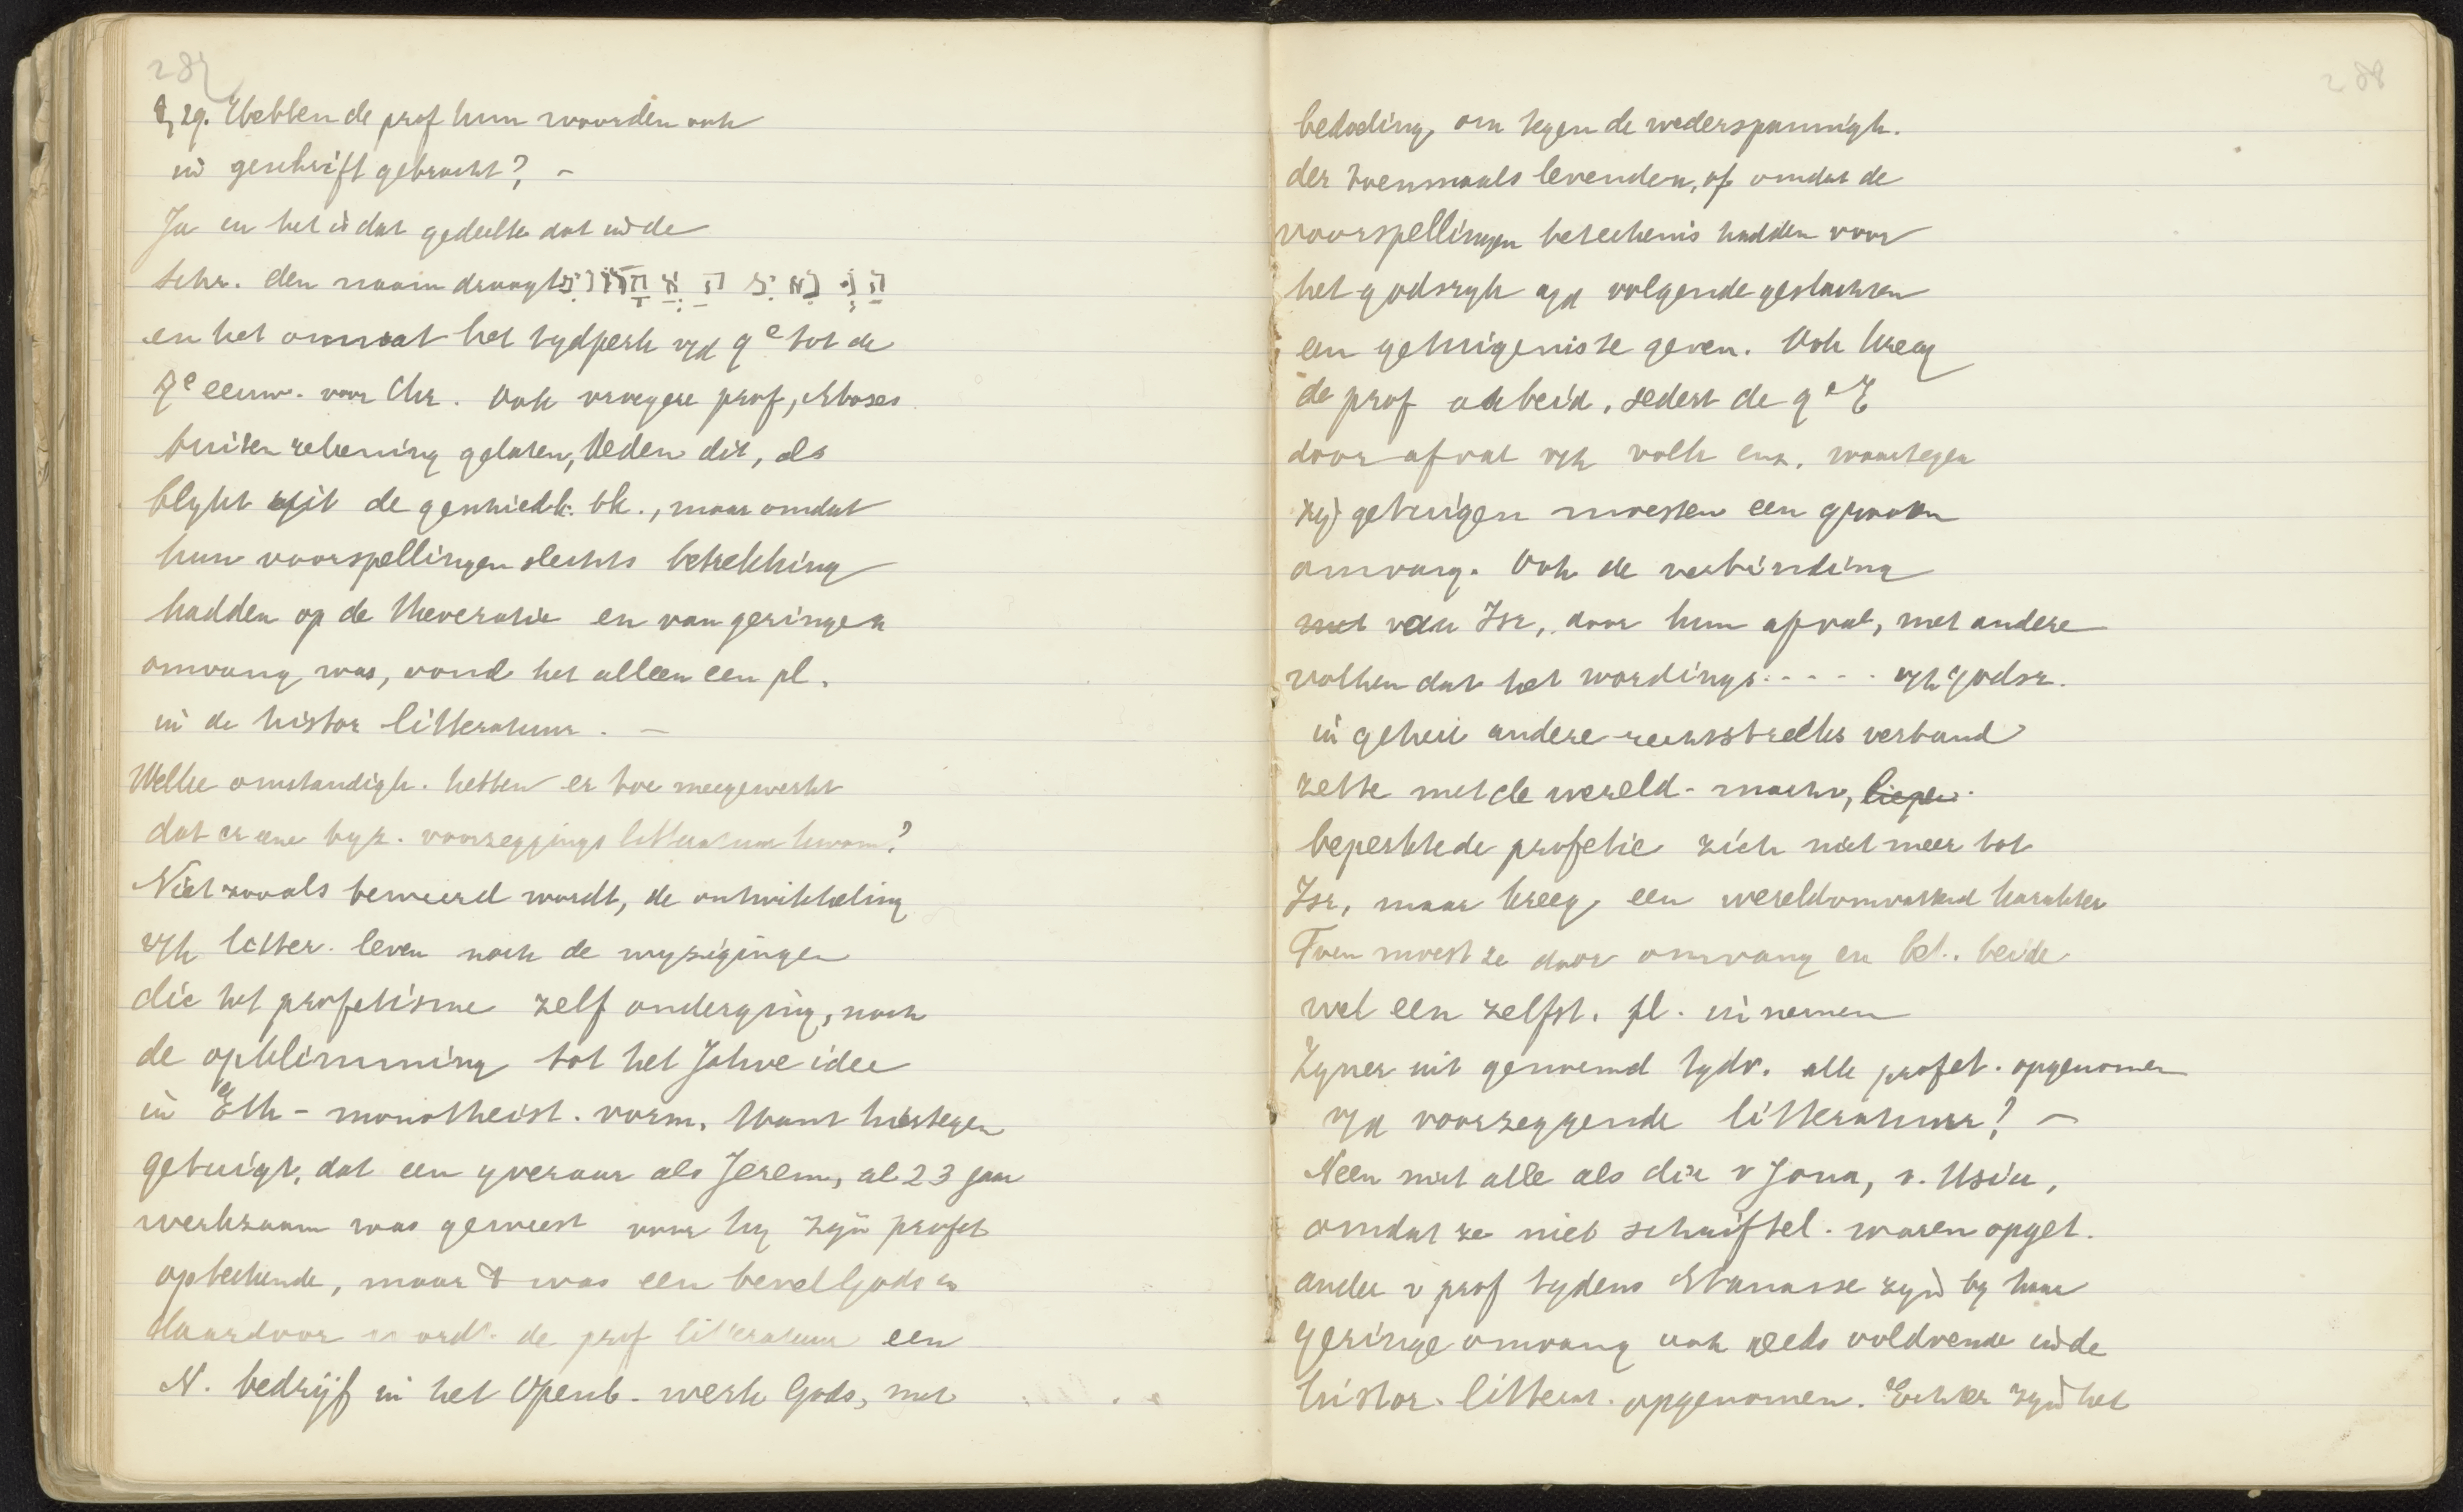 287
§ 29. Hebben de prof hun woorden ook
in geschrift gebracht? –
Ja en het is dat gedeelte dat in de
Schr. den naam draagt הַנְּבִאִים הָאַחֲרוֹנִים
en het omvat het tydperk v/d 9e tot de
7e eeuw. voor Chr. Ook vroegere prof, Moses
buiten rekening gelaten, deden dit, als
blykt uit de geschiedk. bk., maar omdat
hun voorspellingen slechts betrekking
hadden op de theocratie en van geringen
omvang was, vond het alleen een pl.
in de histor litteratuur. –
Welke omstandigh. hebben er toe meegewerkt
dat er eene byz. voorzeggings litteratuur kwam?
Niet zooals beweerd wordt, de ontwikkeling
v/h letter. leven noch de wyzigingen
die het profetisme zelf onderging, noch
de opklimming tot het Jahve idee
in Eth – monotheist. vorm. Want hiertegen
getuigt, dat een yveraar als Jerem, al 23 jaar
werkzaam was geweest voor hy zyn profet
opteekende, maar t was een bevel Gods en
daardoor wordt de prof litteratuur een
N. bedrijf in het Openb. werk Gods, met
288
bedoeling, om tegen de wederspannigh.
der toenmaals levenden, of omdat de
voorspellingen beteekenis hadden voor
het godsryk a/d volgende geslachten
een getuigenisse geven. Ook kreeg
de prof arbeid, sedert de 9e E
door afval v/h volk enz. waartegen
zy getuigen moesten een grooten
omvang. Ook de verbinding
met van Isr, door hun afval, met andere
volken dat het wordings - - - - v/h Godsr.
in geheel andere rechtstreeks verband
zette met de wereld - macht, liepen
beperkte de profetie zich niet meer tot
Isr, maar kreeg een wereldomvattend karakter
Toen moest ze door omvang en bet. beide
wel een zelfst. pl. in nemen
Zyn er uit genoemd tydv. alle profet. opgenomen
v/d voorzeggende litteratuur? –
Neen niet alle als die v Jona, v. Usia,
omdat ze niet schriftel. waren opget.
andere v prof tydens Manasse zyn by haar
geringe omvang ook reeds voldoende in de
histor. litterat. opgenomen. Echter zyn het